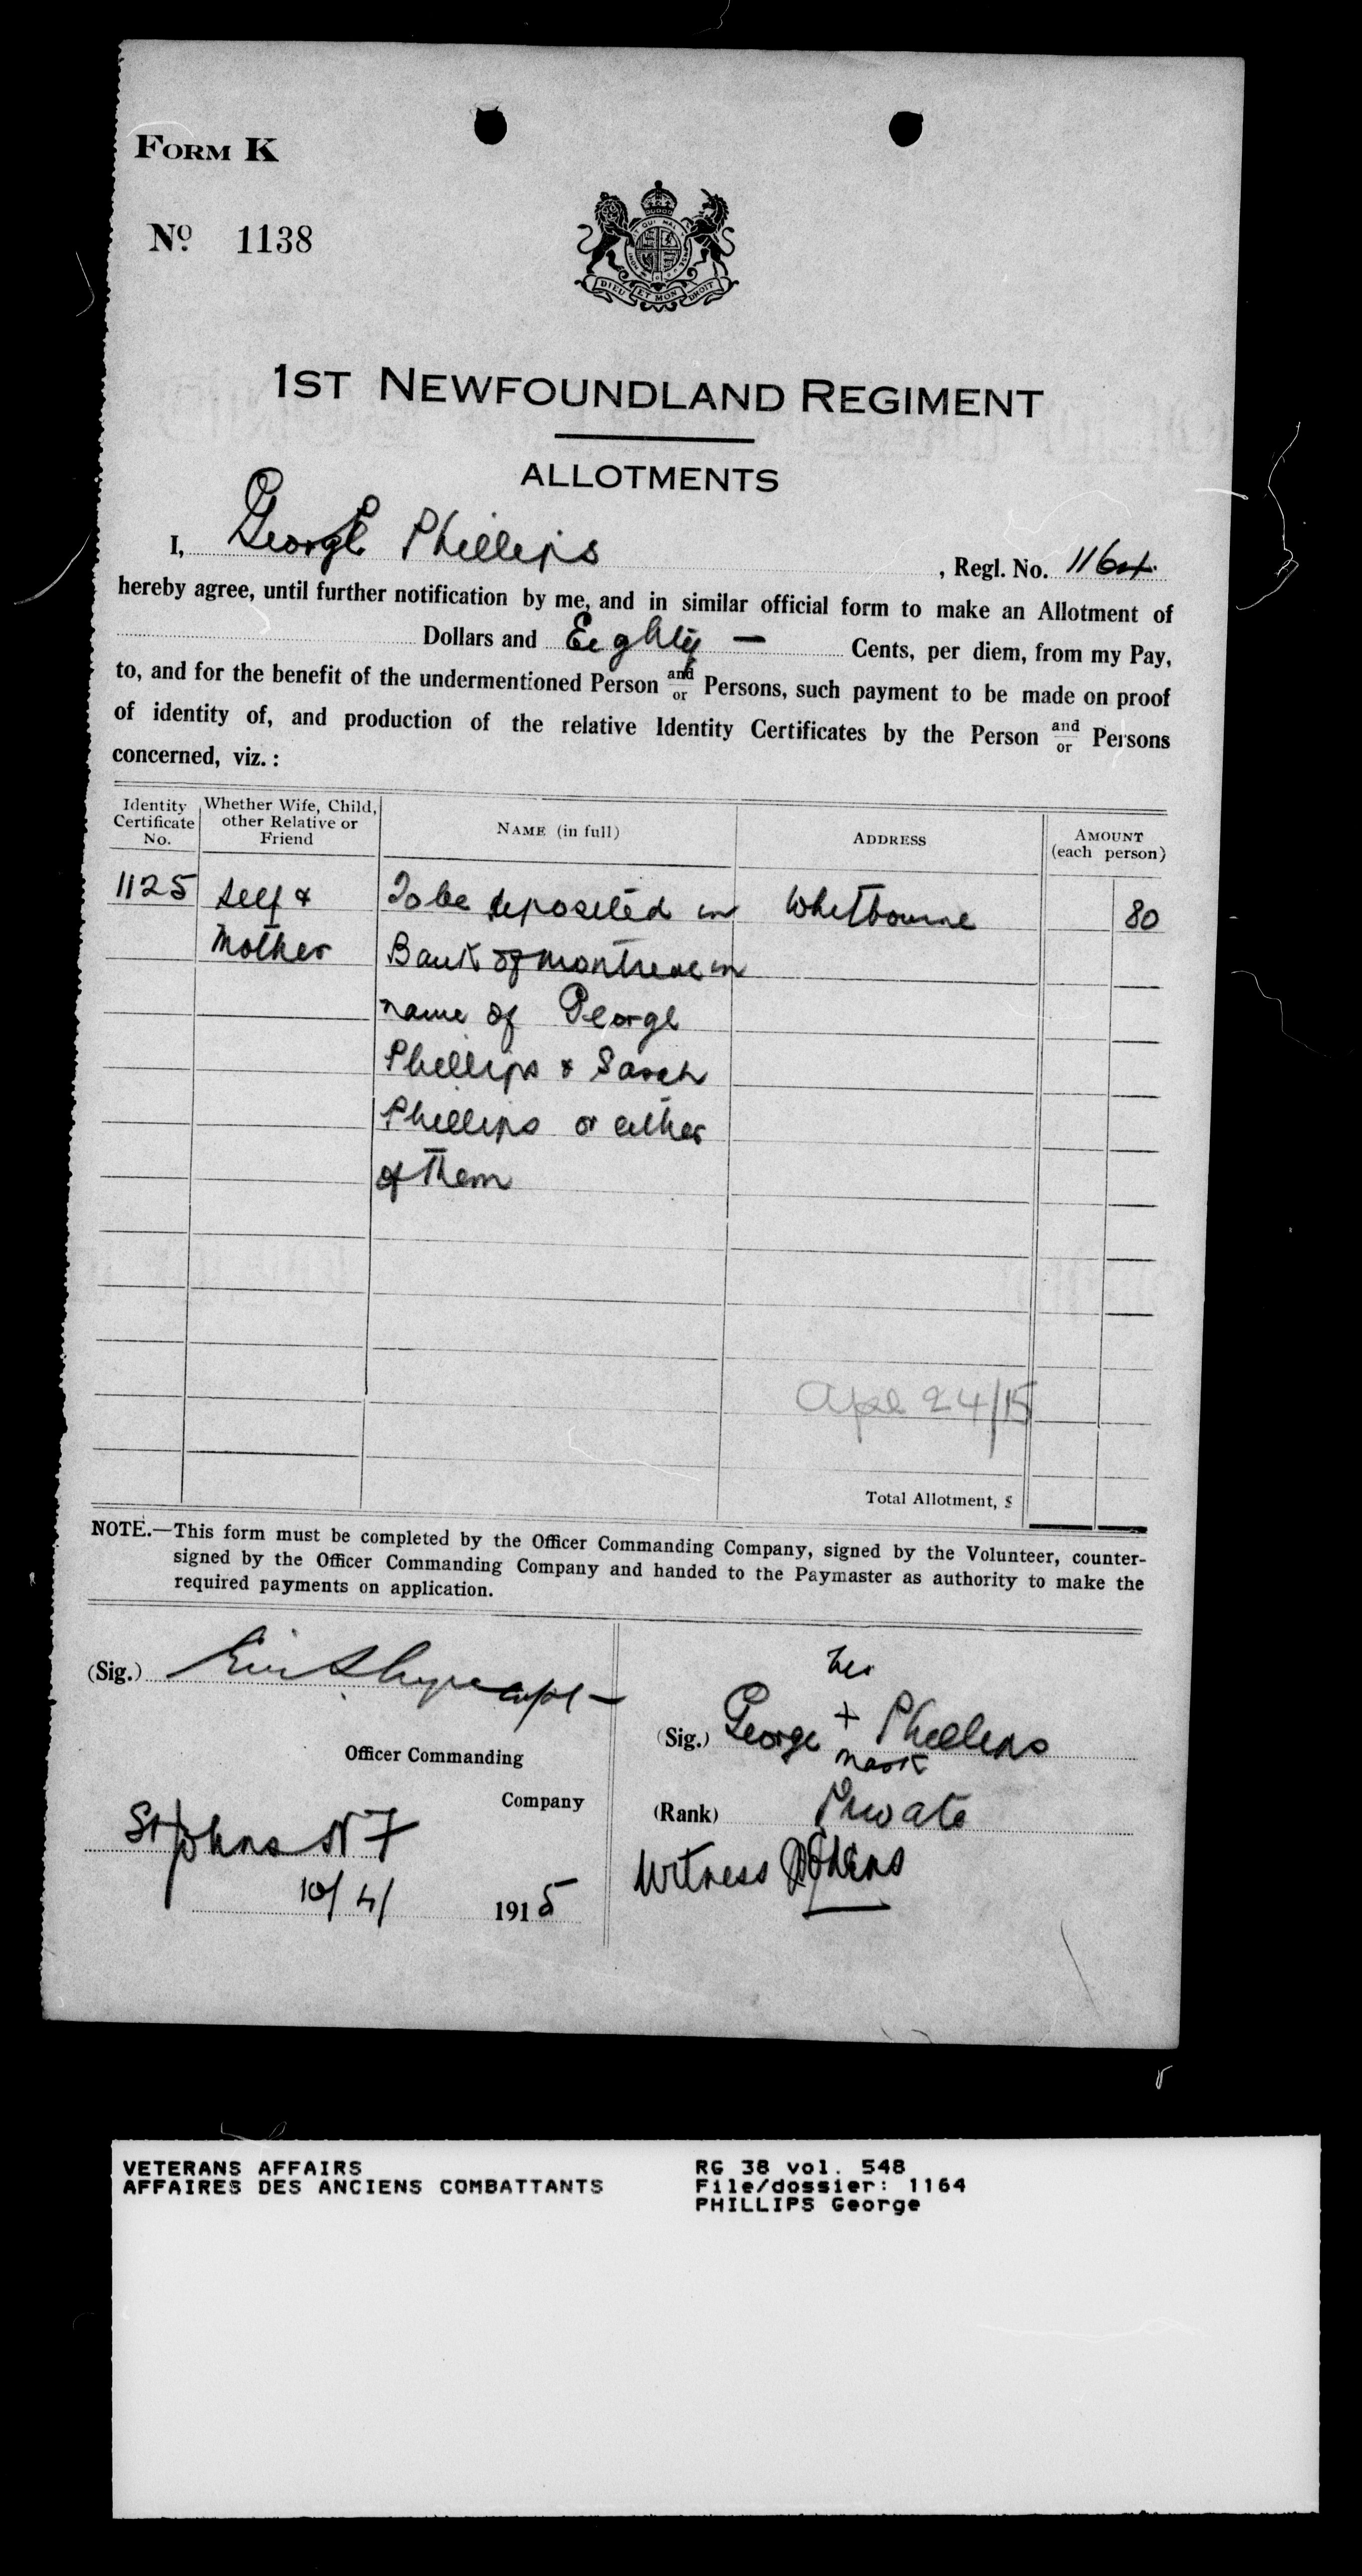 FORM K
No. 1138
DIEU ET MON DROIT
1ST NEWFOUNDLAND REGIMENT
ALLOTMENTS
I, George Phillips, Regl. No. 1164
hereby agree, until further notification by me, and in similar official form to make an Allotment of
Dollars and Eighty — Cents, per diem, from my Pay,
to, and for the benefit of the undermentioned Person and/or Persons, such payment to be made on proof
of identity of, and production of the relative Identity Certificates by the Person and/or Persons
concerned, viz.:
Identity Certificate No.
Whether Wife, Child, other Relative or Friend
NAME (in full)
ADDRESS
AMOUNT (each person)
1125 Self & To be deposited in Whitbourne 80
Mother Bank of Montreal in
name of George
Phillips & Sarah
Phillips or either
of them
Apl 24/15
Total Allotment, $
NOTE.—This form must be completed by the Officer Commanding Company, signed by the Volunteer, counter-
signed by the Officer Commanding Company and handed to the Paymaster as authority to make the
required payments on application.
his
(Sig.) Capt
(Sig.) George + Phillips
mark
Officer Commanding
Company
(Rank) Private
St Johns NF
Witness
10/4/ 1915
VETERANS AFFAIRS
AFFAIRES DES ANCIENS COMBATTANTS
RG 38 vol. 548
File/dossier: 1164
PHILLIPS George